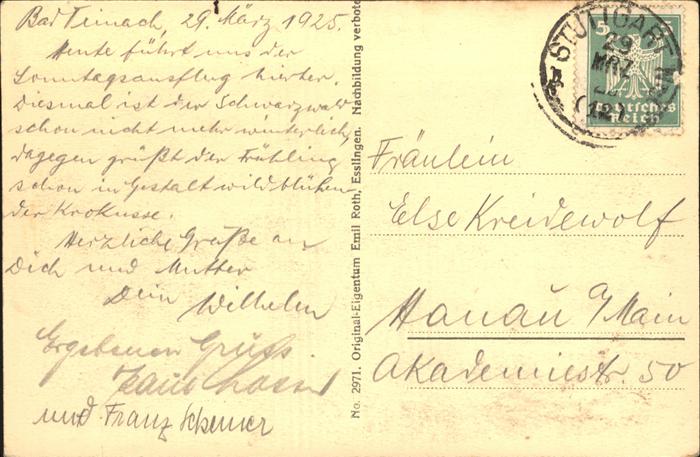 Bad Teinach, 29. März 1925.
Heute führt uns der
Sonntagsausflug hierher.
Diesmal ist der Schwarzwald
schon nicht mehr winterlich,
dagegen grüßt der Frühling
schon in Gestalt wild blühen-
der Krokusse.
Herzliche Grüße an
Dich und Mutter
Dein Wilhelm
Ergebenen Gruß
und Franz
No. 2971. Original-Eigentum Emil Roth, Esslingen. Nachbildung verboten
STUTTGART
29
MRZ
5
Deutsches
Reich
Fräulein
Else Kreidewolf
Hanau a/Main
Akademiestr. 50